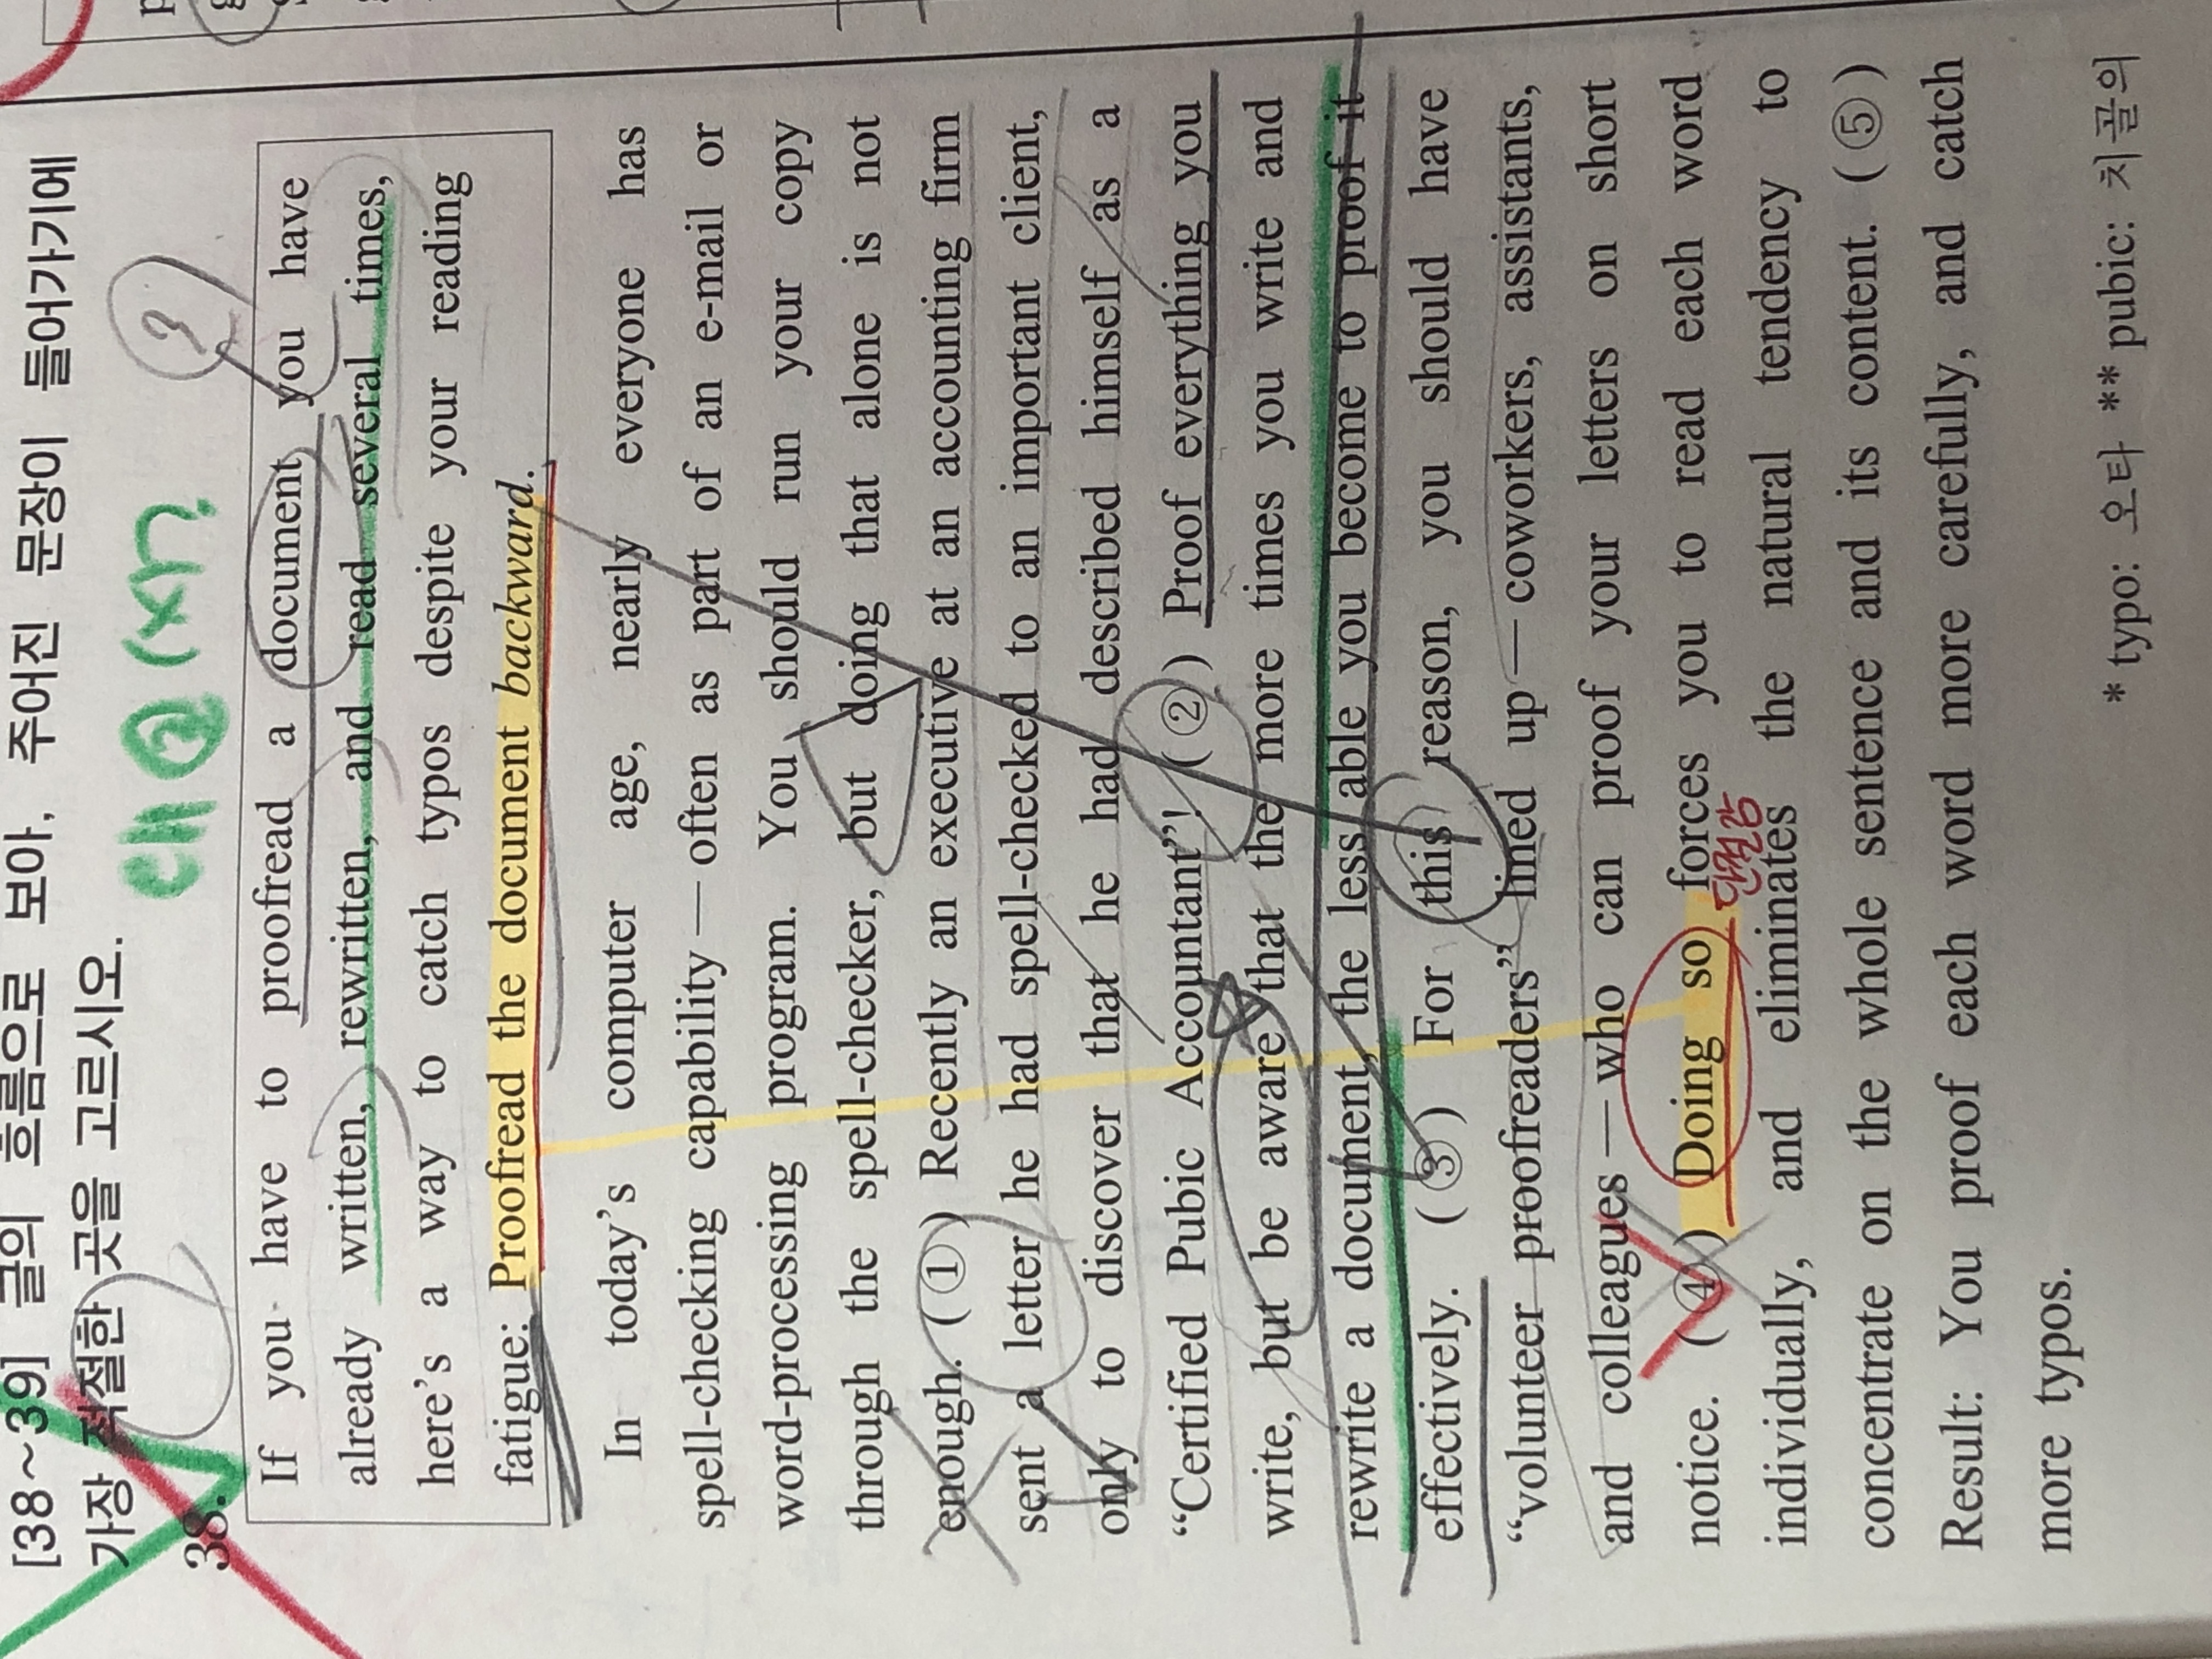 [38~39] 글의 흐름으로 보아, 주어진 문장이 들어가기에
가장 적절한 곳을 고르시오.
38.
If you have to proofread a document you have
already written, rewritten, and read several times,
here's a way to catch typos despite your reading
fatigue: Proofread the document backward.
In today's computer age, nearly everyone has
spell-checking capability—often as part of an e-mail or
word-processing program. You should run your copy
through the spell-checker, but doing that alone is not
enough. (①) Recently an executive at an accounting firm
sent a letter he had spell-checked to an important client,
only to discover that he had described himself as a
“Certified Pubic Accountant”! (②) Proof everything you
write, but be aware that the more times you write and
rewrite a document, the less able you become to proof it
effectively. (③) For this reason, you should have
“volunteer proofreaders” lined up—coworkers, assistants,
and colleagues—who can proof your letters on short
notice. (④) Doing so forces you to read each word
단절감
individually, and eliminates the natural tendency to
concentrate on the whole sentence and its content. (⑤)
Result: You proof each word more carefully, and catch
more typos.
* typo: 오타 ** pubic: 치골의